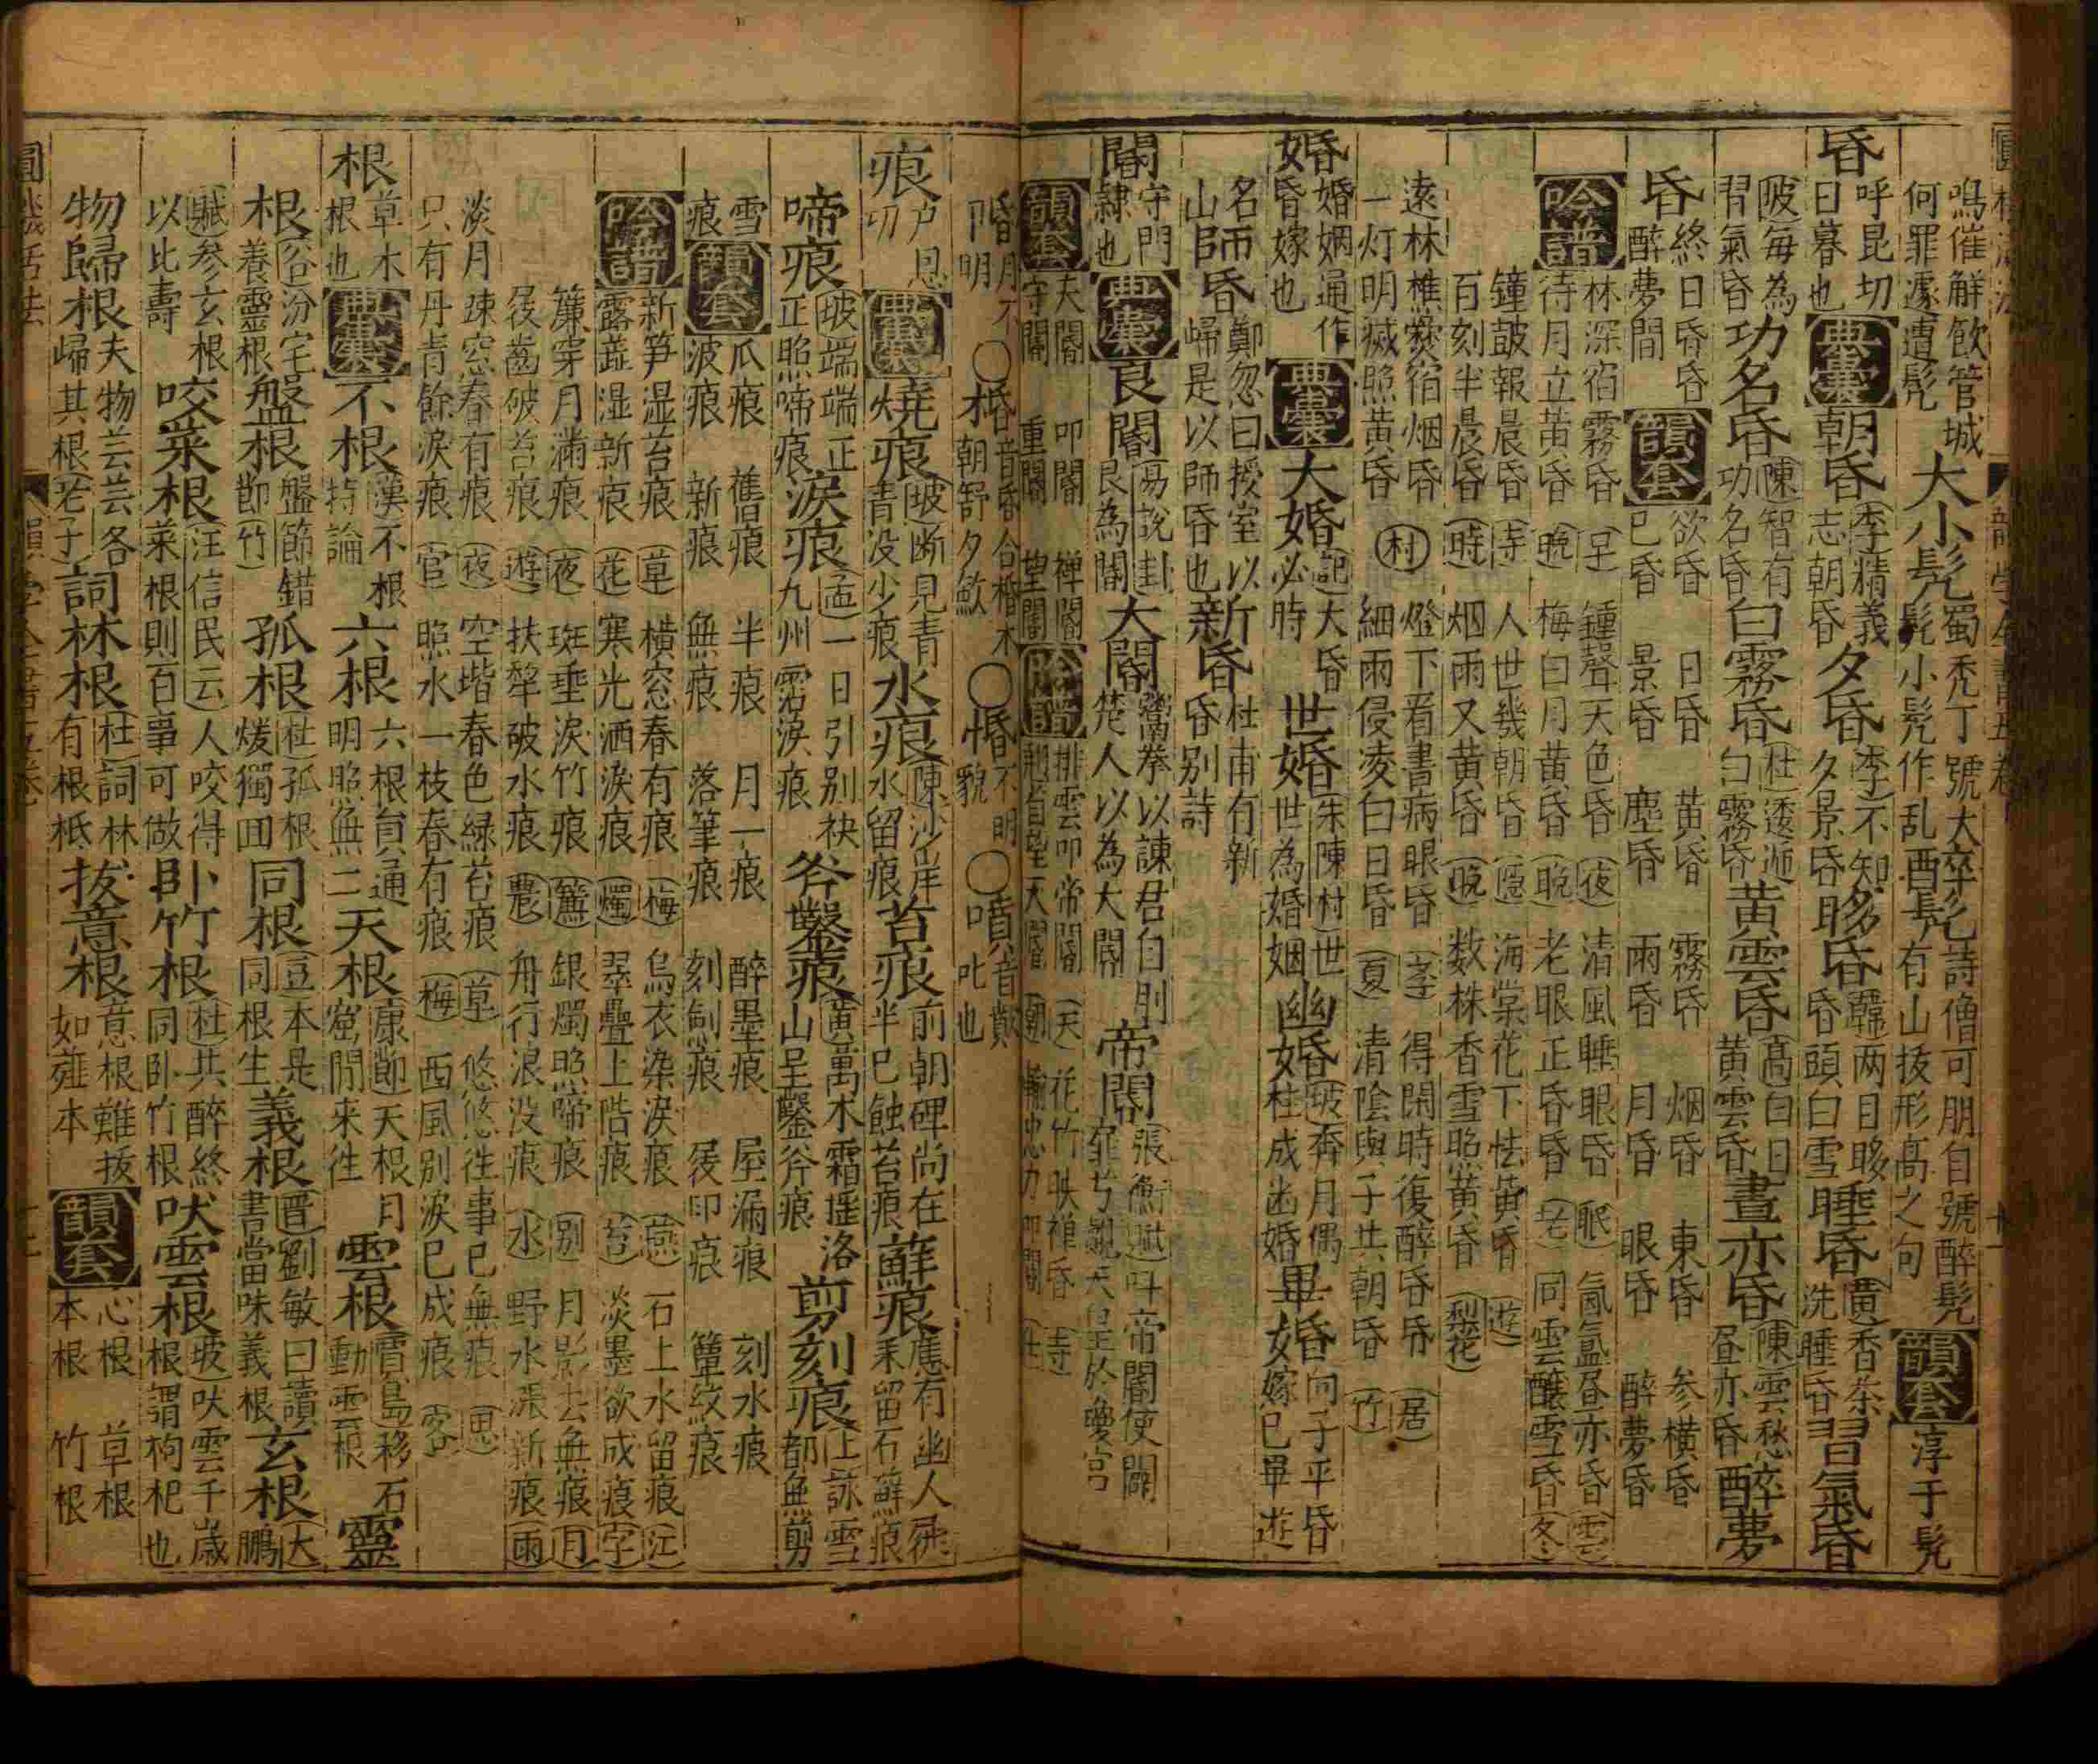 鳴催解飲管城何罪遽遭髡 大小髡 蜀禿丁號大髡小髡作乱 醉髡 詩僧可朋自號醉髡有山抜形高之句 韻套 淳于髡
昏 呼昆切日暮也 典囊 朝昏 (李)精義志朝昏 夕昏 (李)不知夕景昏 眵昏 (韓)两目眵昏頭白雪 睡昏 (黃)香茶洗睡昏 習氣昏
每為習氣昏 功名昏 (陳)智有功名昏 白霧昏 (杜)透迤白霧昏 黃雲昏 (高)白日黃雲昏 晝亦昏 (陳)雲愁昼亦昏 醉夢
昏 終日昏昏醉夢間 韻套 欲昏 日昏 黃昏 霧昏 烟昏 東昏 参橫昏 已昏 景昏 塵昏 雨昏 月昏 眼昏 醉夢昏
吟譜 林深宿霧昏(呈) 鍾聲天色昏(夜) 清風睡眼昏(眠) 氤氳昼亦昏(雲) 待月立黃昏(晩) 梅白月黃昏(晩) 老眼正昏昏(老) 同雲釀雪昏(冬)
鐘皷報晨昏(寺) 人世幾朝昏(隠) 海棠花下怯黃昏(遊) 百刻半晨昏(時) 烟雨又黃昏(晩) 数株香雪照黃昏(梨花)
遠林樵爨宿烟昏(村) 燈下看書病眼昏 得閑時復醉昏昏(居) 一灯明滅照黃昏 細雨侵凌白日昏(夏) 清陰與子共朝昏(竹)
婚 婚姻通作昏嫁也 典囊 大婚 (記)大昏必時 世婚 (朱陳村)世世為婚姻 幽婚 奔月偶桂成幽婚 畢婚 向子平昏嫁已畢遊
名山 師昏 鄭忽曰授室以歸是以師昏也 新昏 杜甫有新昏别詩
閽 守門隷也 典囊 艮閽 (易說卦)艮為閽 大閽 鬻拳以諫君自刖楚人以為大閽 帝閽 (張衡賦)叫帝閽使闢扉兮覿天皇於瓊宮
韻套 天閽 叩閽 禅閽 守閽 重閽 望閽 吟譜 排雲叩帝閽(天) 花竹映禅昏(寺)
○惛 不明貌 ○噴 吒也
痕 户恩切 典囊 燒痕 (坡)断見青青没少痕 水痕 (陳)沙岸水留痕 苔痕 前朝碑尚在半已蝕苔痕 蘚痕 應有幽人屐來留石蘚痕
啼痕 端端正正照啼痕 淚痕 (孟)一日引别袂九州霑淚痕 斧鑿痕 (黃)萬木霜揺落山呈鑿斧痕 剪刻痕 上詠雪都無剪
雪痕 韻套 瓜痕 舊痕 半痕 月一痕 醉墨痕 屋漏痕 刻水痕 波痕 新痕 無痕 落筆痕 刻劍痕 屐印痕 簟紋痕
吟譜 新笋湿苔痕(草) 橫窓春有痕(梅) 烏衣染淚痕(燕) 石上水留痕(江) 露蕋湿新痕(花) 寒光洒淚痕(燭) 翠疊上階痕(苔) 淡墨欲成痕(字)
簾穿月滿痕(夜) 斑垂淚竹痕(簾) 銀燭照啼痕(别) 月影去無痕(月) 屐齒破苔痕(遊) 扶犂破水痕(農) 舟行浪没痕(水) 野水漲新痕(雨)
淡月疎窓春有痕(夜) 空堦春色緑苔痕(草) 悠悠往事已無痕(思) 只有丹青餘淚痕(官) 照水一枝春有痕(梅) 西風别淚已成痕(客)
根 草木根也 典囊 不根 漢不根持論 六根 六根貟通明照無二 天根 (康節)天根月窟閒來往 雲根 (賈島)移石動雲根 靈
根 (谷)汾宅養靈根 盤根 盤節錯節(竹) 孤根 (杜)孤根煖獨回 同根 (豆)本是同根生 義根 (晋)劉敏曰讀書當味義根 玄根 (大鵬
賦)参玄根以比壽 咬菜根 (汪信民云)人咬得菜根則百事可做 卧竹根 (杜)共醉終同卧竹根 吠雲根 (坡)吠雲千歲根謂枸杞也
物歸根 夫物芸芸各歸其根(老子) 詞林根 (杜)詞林有根柢 拔意根 意根難拔如薤本 韻套 心根 草根 本根 竹根